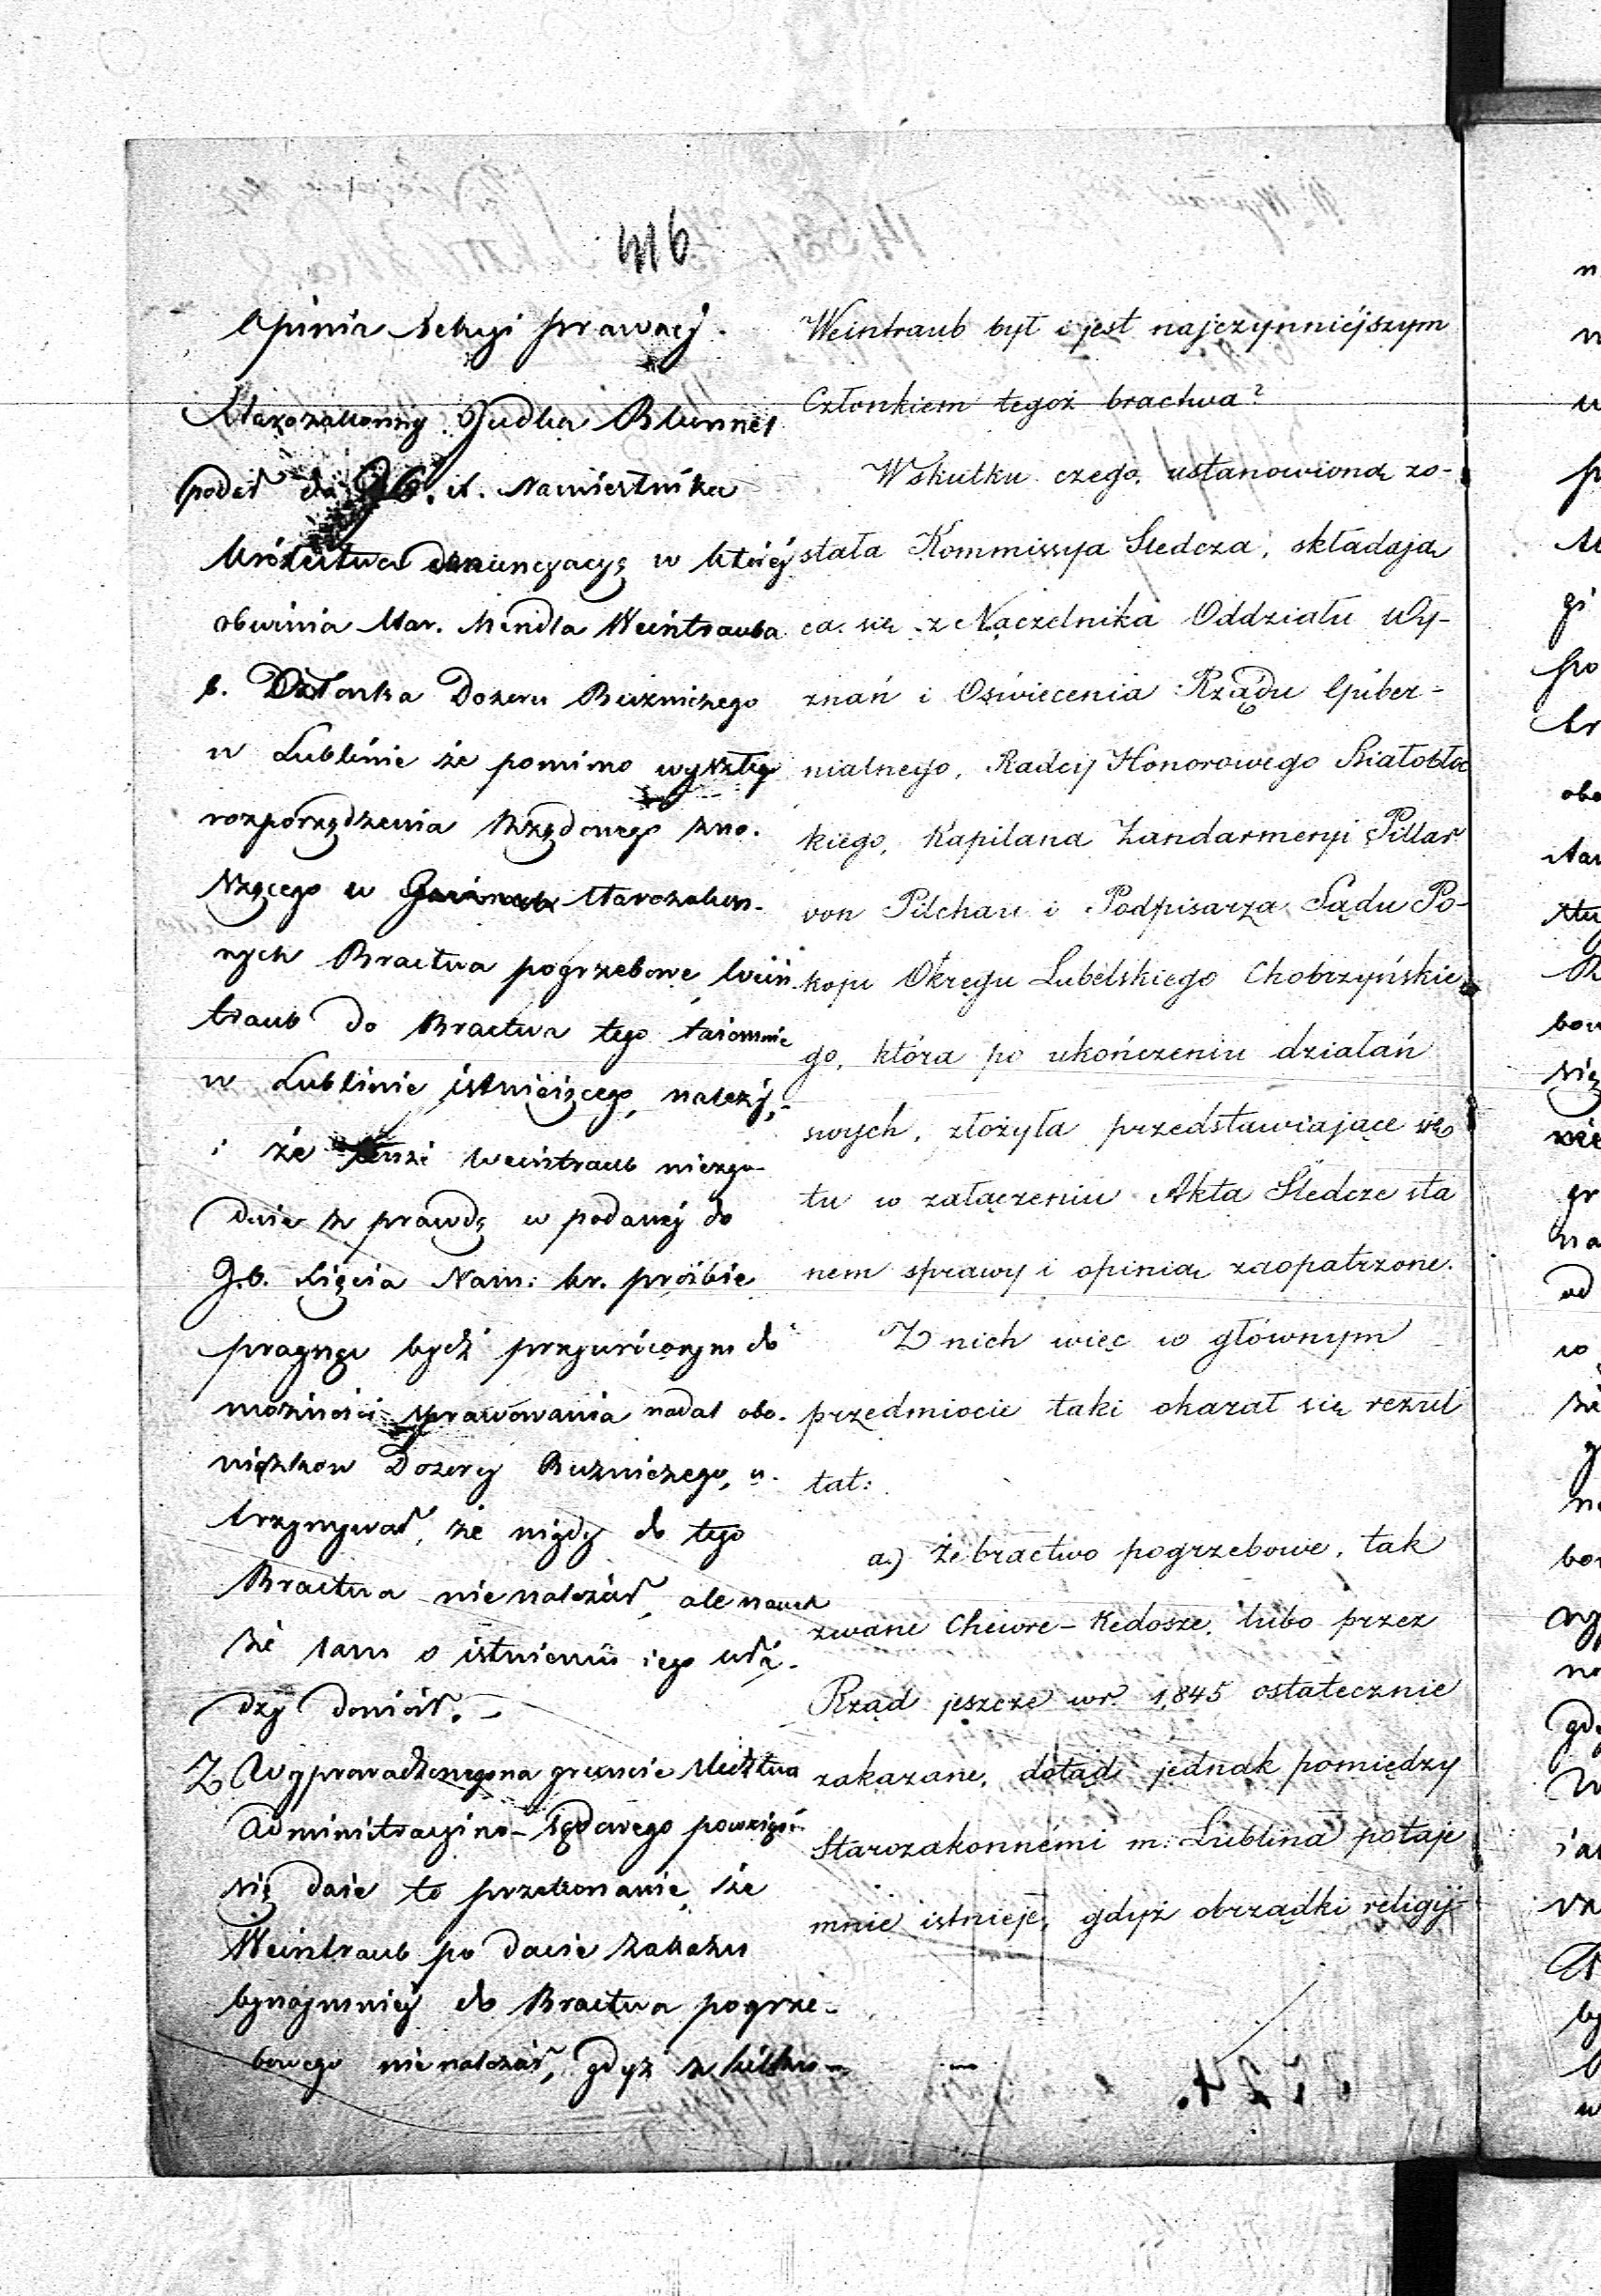 416
Opinia Sekcyi prawnej.
Starozakonny Judka Blumnes
podał do J. O. X. Namiestnika
Królestwa denuncyacyę w której
obwinia Star. Mendla Weintrauba
b. Członka Dozoru Bużniczego
w Lublinie że pomimo wyszłego
rozporządzenia Rządowego zno-
szącego w starozakon-
nych Bractwa pogrzebowe, Wein
traub do Bractwa tego taiemnie
w Lublinie istnieiącego, należy,-
i że tenże Weintraub niezgo-
dnie z prawdą w podanej do
J. O. Xięcia Nam: kr. prośbie
pragnąc bydź przywróconym do
możności sprawowania nadal obo-
wiązków Dozorcy Bużniczego, u-
trzymywał, że nigdy do tego
Bractwa nie należał, ale nawet
że sam o istnieniu iego wła-
dzy doniósł.-
Z Wyprowadzonego na gruncie śledztwa
Administracyino-Sądowego powziąść
się daie to przekonanie, że
Weintraub po dacie zakazu
bynajmniej do Bractwa pogrze-
bowego nie należał, gdyż z kilku-
Weintraub był i jest najczynniejszym
Członkiem tegoż bractwa?
Wskutku czego, ustanowioną zo-
stała Kommissya Śledcza, składają
ca się z Naczelnika Oddziału Wy-
znań i Oświecenia Rządu Guber-
nialnego, Radcy Honorowego Białobłoc
kiego, Kapitana Żandarmeryi Pillar
von Pilchau i Podpisarza Sądu Po-
koju Okręgu Lubelskiego Chobrzyńskie
go, która po ukończeniu działań
swych, złożyła przedstawiające się
tu w załączeniu Akta Śledcze sta
nem sprawy i opinią zaopatrzone.
Z nich więc w głównym
przedmiocie taki okazał się rezul
tat:
a.) że bractwo pogrzebowe, tak
zwane Chewre-Kedosze, lubo przez
Rząd jeszcze w r. 1845 ostatecznie
zakazane, dotąd jednak pomiędzy
Starozakonnémi m: Lublina potaje
mnie istnieje, gdyż obrządki religij-